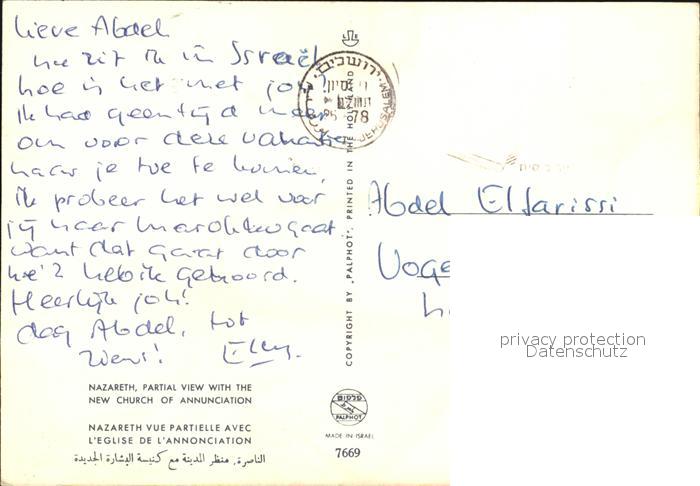 lieve Abdel
hier zit ik in Israël
hoe is het met jou?
Ik had geen tijd meer
om voor deze vakantie
naar je toe te komen,
ik probeer het wel voor
jij naar marokko gaat
want dat gaat door
hè? heb ik gehoord.
Heerlijk joh!
dag Abdel, tot
ziens! Elly.
NAZARETH, PARTIAL VIEW WITH THE
NEW CHURCH OF ANNUNCIATION
NAZARETH VUE PARTIELLE AVEC
L'EGLISE DE L'ANNONCIATION
الناصرة. منظر المدينة مع كنيسة البشارة الجديدة
COPYRIGHT BY „PALPHOT" PRINTED IN THE HOLYLAND
ירושלים
JERUSALEM
78
Abdel Elfarissi
Voge
privacy protection
Datenschutz
פלפוט
PALPHOT
MADE IN ISRAEL
7669